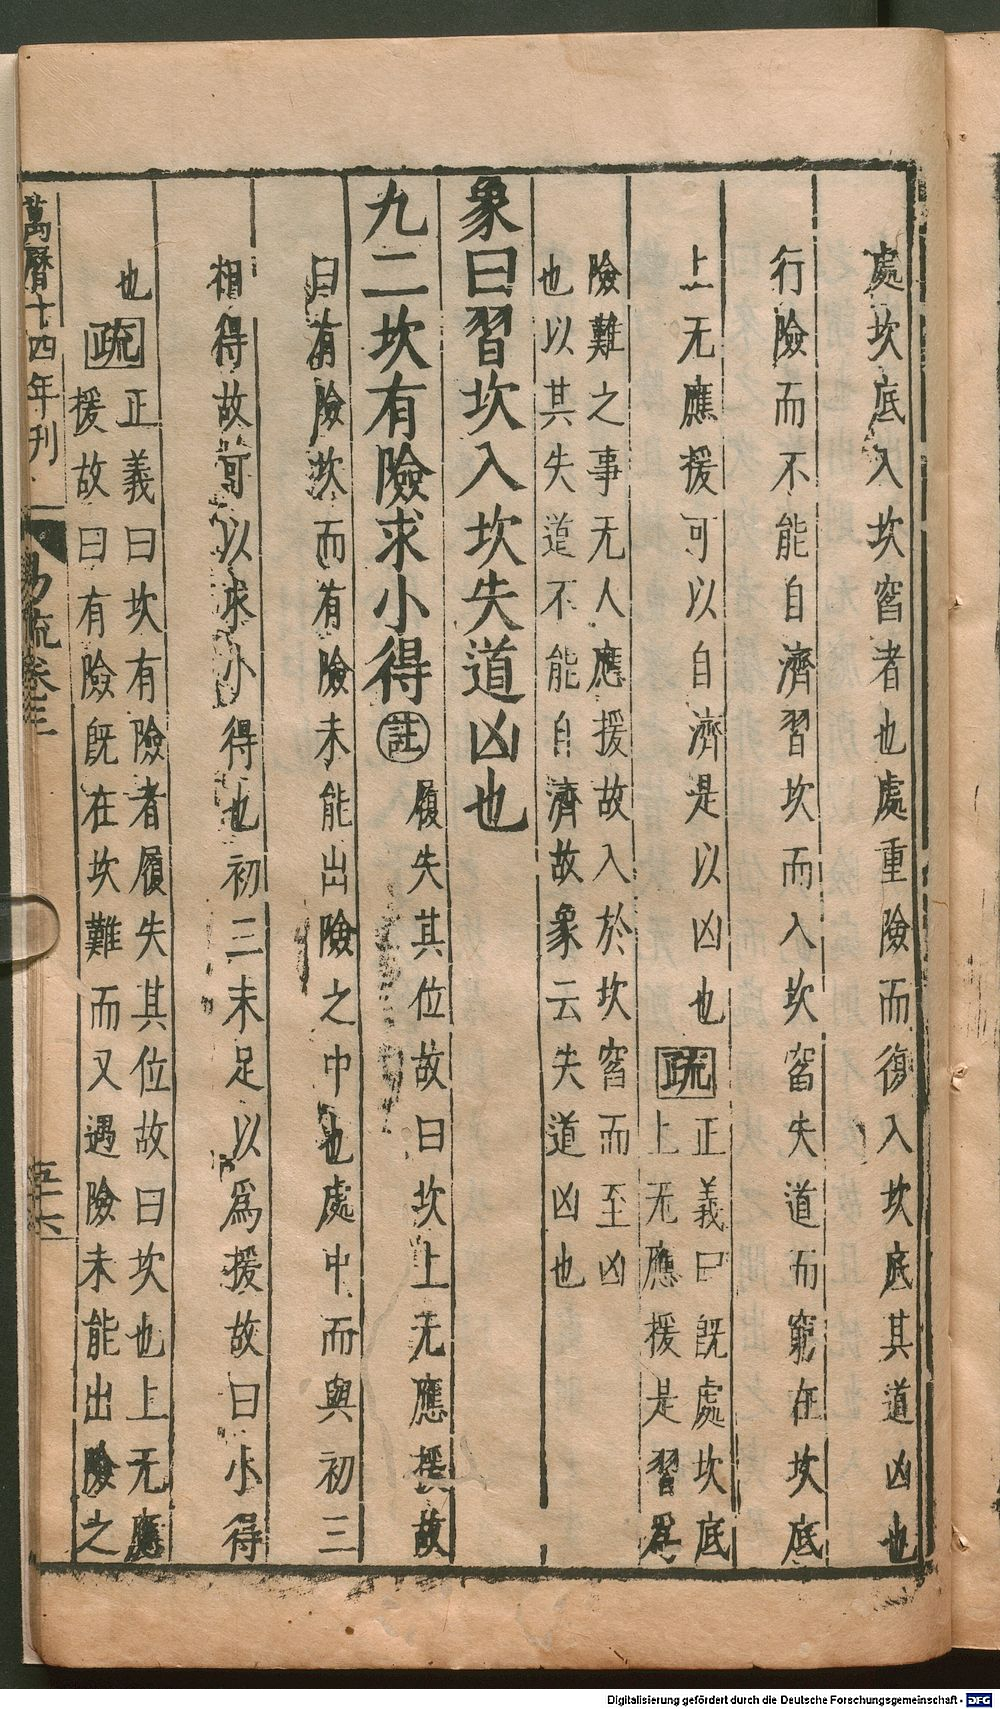 處坎底入坎窞者也處重險而復入坎底其道凶也
行險而不能自濟習坎而入坎窞失道而窮在坎底
上无應援可以自濟是以凶也疏正義曰旣處坎底
上无應援是習爲
險難之事无人應援故入於坎窞而至凶
也以其失道不能自濟故象云失道凶也
象曰習坎入坎失道凶也
九二坎有險求小得註履失其位故曰坎上无應援故
曰有險坎而有險未能出險之中也處中而與初三
相得故可以求小得也初三未足以爲援故曰小得
也疏正義曰坎有險者履失其位故曰坎也上无應
援故曰有險旣在坎難而又遇險未能出險之
萬曆十四年刋
易疏卷三
五十六
Digitalisierung gefördert durch die Deutsche Forschungsgemeinschaft - DFG